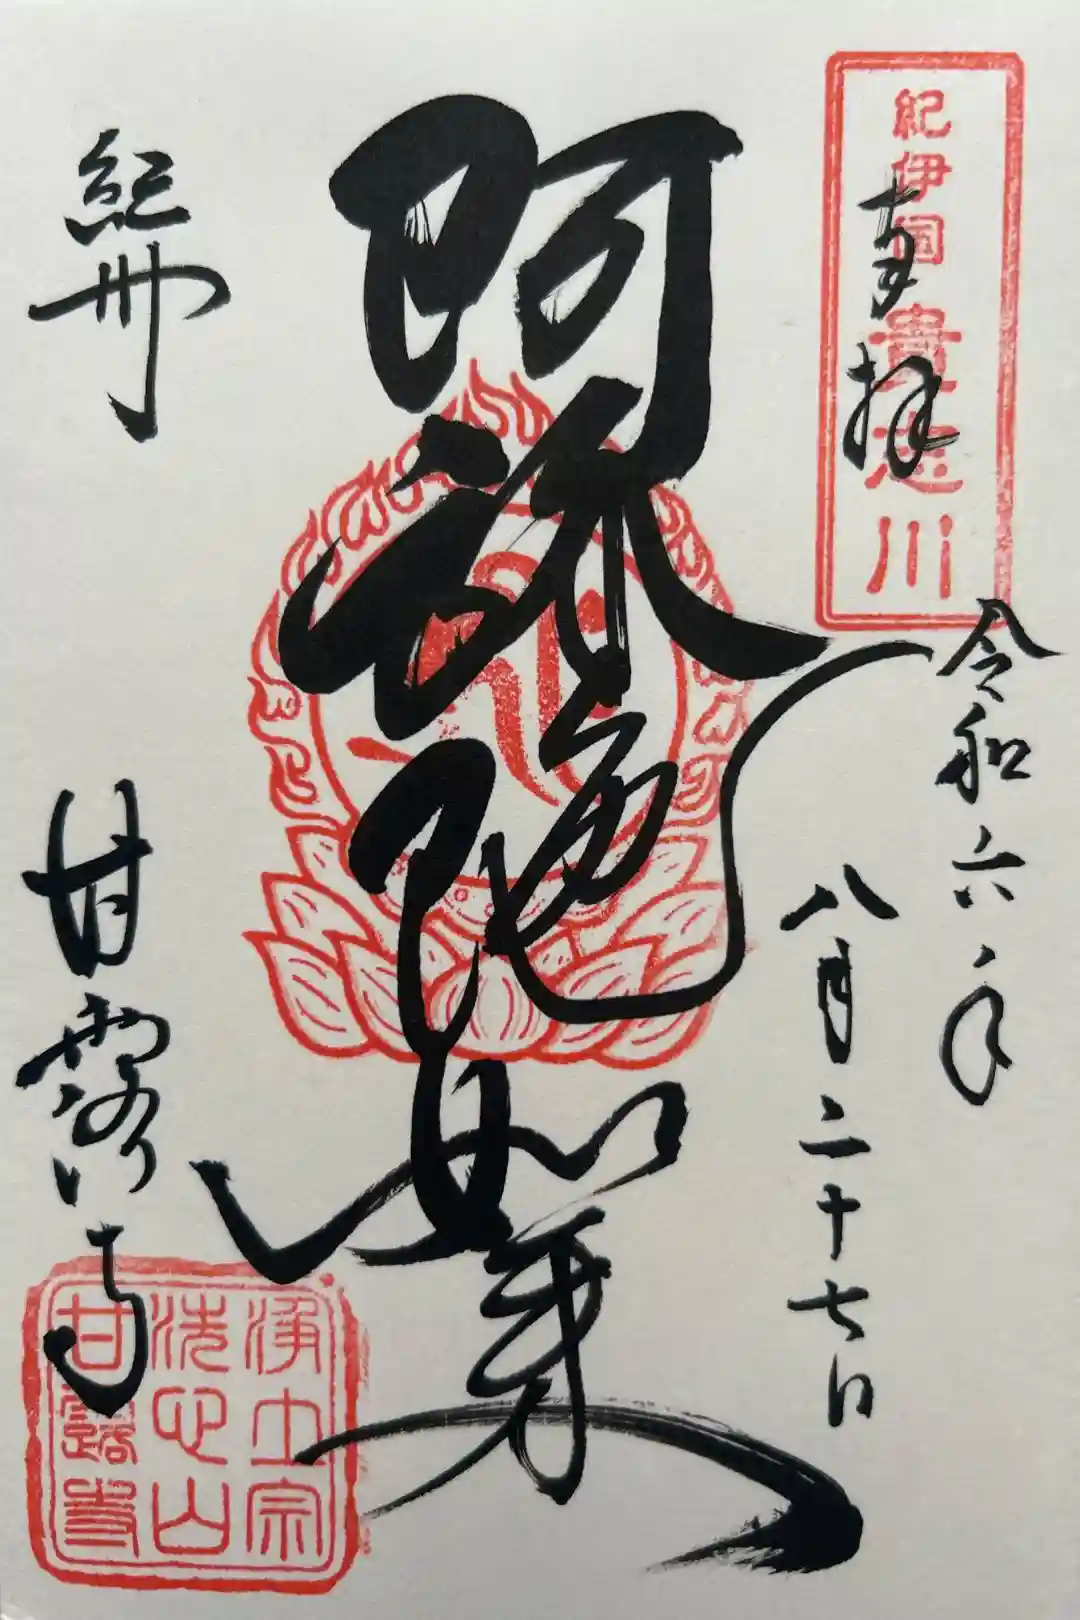 紀伊国 貴志川
奉拝
令和六年
八月二十七日
阿弥陀如来
紀州 甘露寺
浄土宗
洗心山
甘露寺